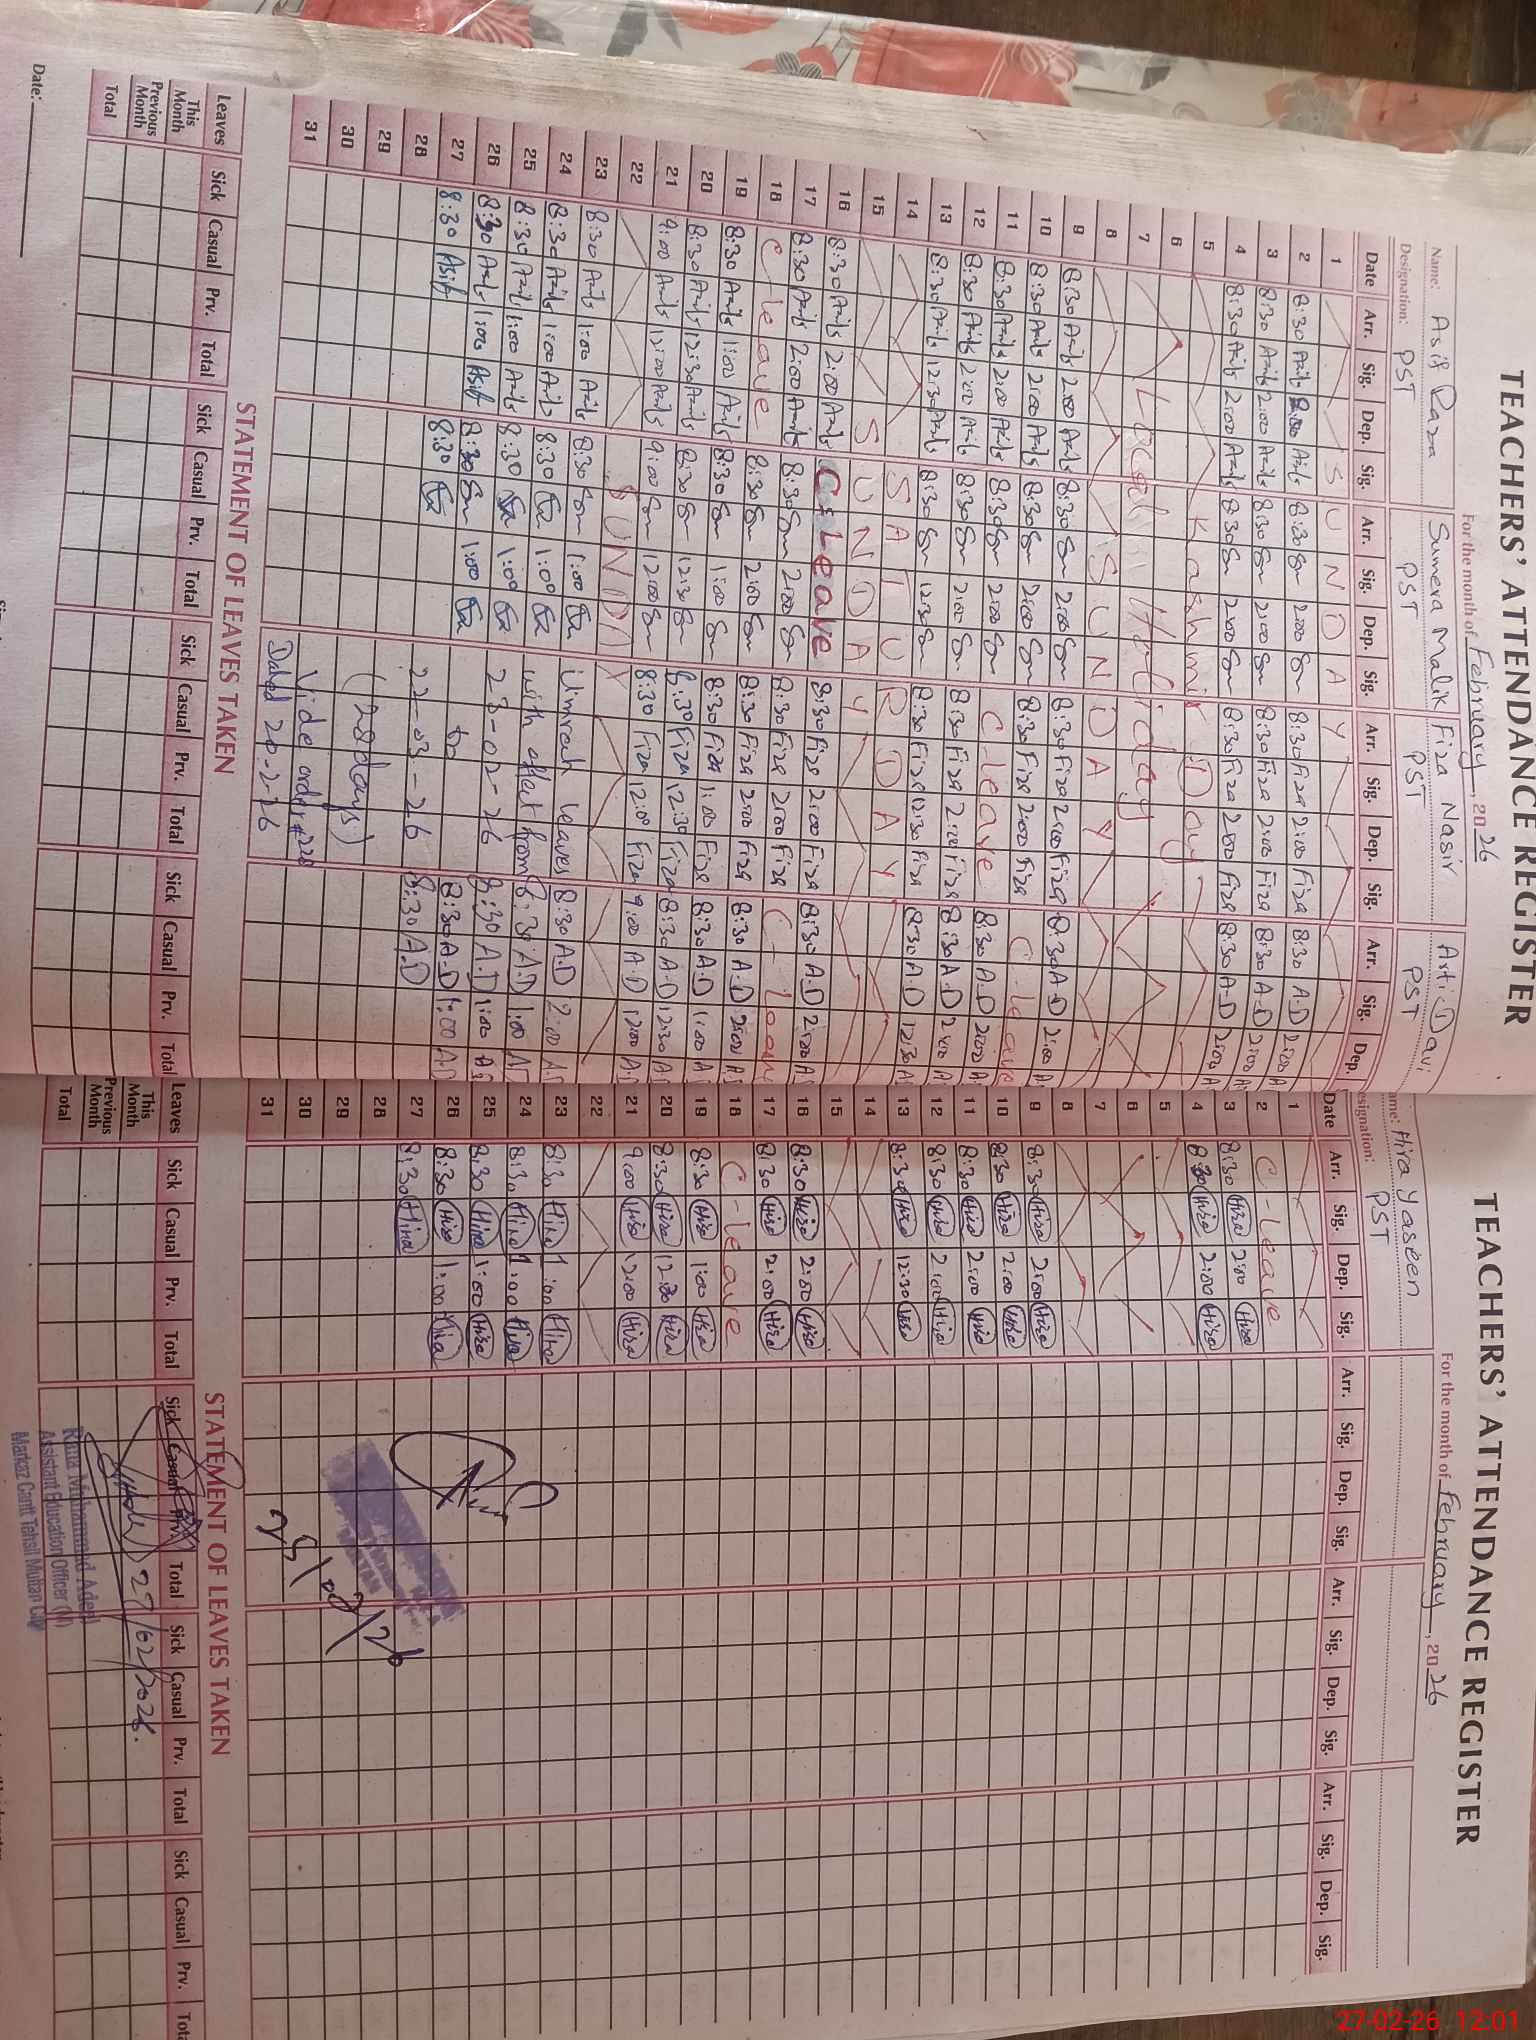 TEACHERS' ATTENDANCE REGISTER
For the month of February, 2026
Name: Asif Raza Sumera Malik Fiza Nasir Arti Davi
Designation: PST PST PST PST
Date Arr. Sig. Dep. Sig. Arr. Sig. Dep. Sig. Arr. Sig. Dep. Sig. Arr. Sig. Dep.
1 SUNDAY
2 8:30 2:00 8:30 2:00 8:30 Fiza 2:00 Fiza 8:30 A.D 2:00
3 8:30 2:00 8:30 2:00 8:30 Fiza 2:00 Fiza 8:30 A.D 2:00
4 8:30 2:00 8:30 2:00 8:30 Fiza 2:00 Fiza 8:30 A.D 2:00
5 Kashmir Day
6
7 Local Holiday
8 SUNDAY
9 8:30 2:00 8:30 2:00 8:30 Fiza 2:00 Fiza 8:30 A.D 2:00
10 8:30 2:00 8:30 2:00 8:30 Fiza 2:00 Fiza C-leave
11 8:30 2:00 8:30 2:00 C-leave 8:30 A.D 2:00
12 8:30 2:00 8:30 2:00 8:30 Fiza 2:00 Fiza 8:30 A.D 2:00
13 8:30 12:30 8:30 12:30 8:30 Fiza 12:30 Fiza 8:30 A.D 12:30
14 SATURDAY
15 SUNDAY
16 8:30 2:00 C-Leave 8:30 Fiza 2:00 Fiza 8:30 A.D 2:00
17 8:30 2:00 8:30 2:00 8:30 Fiza 2:00 Fiza C-Leave
18 C-leave 8:30 2:00 8:30 Fiza 2:00 Fiza 8:30 A.D 2:00
19 8:30 1:00 8:30 1:00 8:30 Fiza 1:00 Fiza 8:30 A.D 1:00
20 8:30 12:30 8:30 12:30 8:30 Fiza 12:30 Fiza 8:30 A.D 12:30
21 9:00 12:00 9:00 12:00 8:30 Fiza 12:00 Fiza 9:00 A.D 12:00
22 SUNDA
23 8:30 1:00 8:30 1:00 Umrah leaves 8:30 A.D 2:00
24 8:30 1:00 8:30 1:00 with effect from 8:30 A.D 1:00
25 8:30 1:00 8:30 1:00 23-02-26 8:30 A.D 1:00
26 8:30 1:00 Asif 8:30 1:00 to 8:30 A.D 1:00 A.D
27 8:30 Asif 8:30 22-03-26 8:30 A.D
28 (28 days)
29
30 Vide order #228
31 Dated 20-2-26
STATEMENT OF LEAVES TAKEN
Leaves Sick Casual Prv. Total Sick Casual Prv. Total Sick Casual Prv. Total Sick Casual Prv. Total
This Month
Previous Month
Total
Date:
TEACHERS' ATTENDANCE REGISTER
For the month of February, 2026
ame: Hira Yaseen
esignation: PST
Date Arr. Sig. Dep. Sig. Arr. Sig. Dep. Sig. Arr. Sig. Dep. Sig. Arr. Sig. Dep. Sig.
1
2 C-leave
3 8:30 Hira 2:00 Hira
4 8:30 Hira 2:00 Hira
5
6
7
8
9 8:30 Hira 2:00 Hira
10 8:30 Hira 2:00 Hira
11 8:30 Hira 2:00 Hira
12 8:30 Hira 2:00 Hira
13 8:30 Hira 12:30 Hira
14
15
16 8:30 Hira 2:00 Hira
17 8:30 Hira 2:00 Hira
18 C-leave
19 8:30 Hira 1:00 Hira
20 8:30 Hira 12:30 Hira
21 9:00 Hira 12:00 Hira
22
23 8:30 Hira 1:00 Hira
24 8:30 Hira 1:00 Hira
25 8:30 Hira 1:00 Hira
26 8:30 Hira 1:00 Hira
27 8:30 Hira
28
29
30
31
25/02/26
STATEMENT OF LEAVES TAKEN
Leaves Sick Casual Prv. Total Sick Casual Prv. Total Sick Casual Prv. Total Sick Casual Prv. Tot
This Month
Previous Month
Total
27/02/2026.
Rana Muhammad Adeel
Assistant Education Officer (M)
Markaz Cantt Tehsil Multan City
27-02-26 12:01